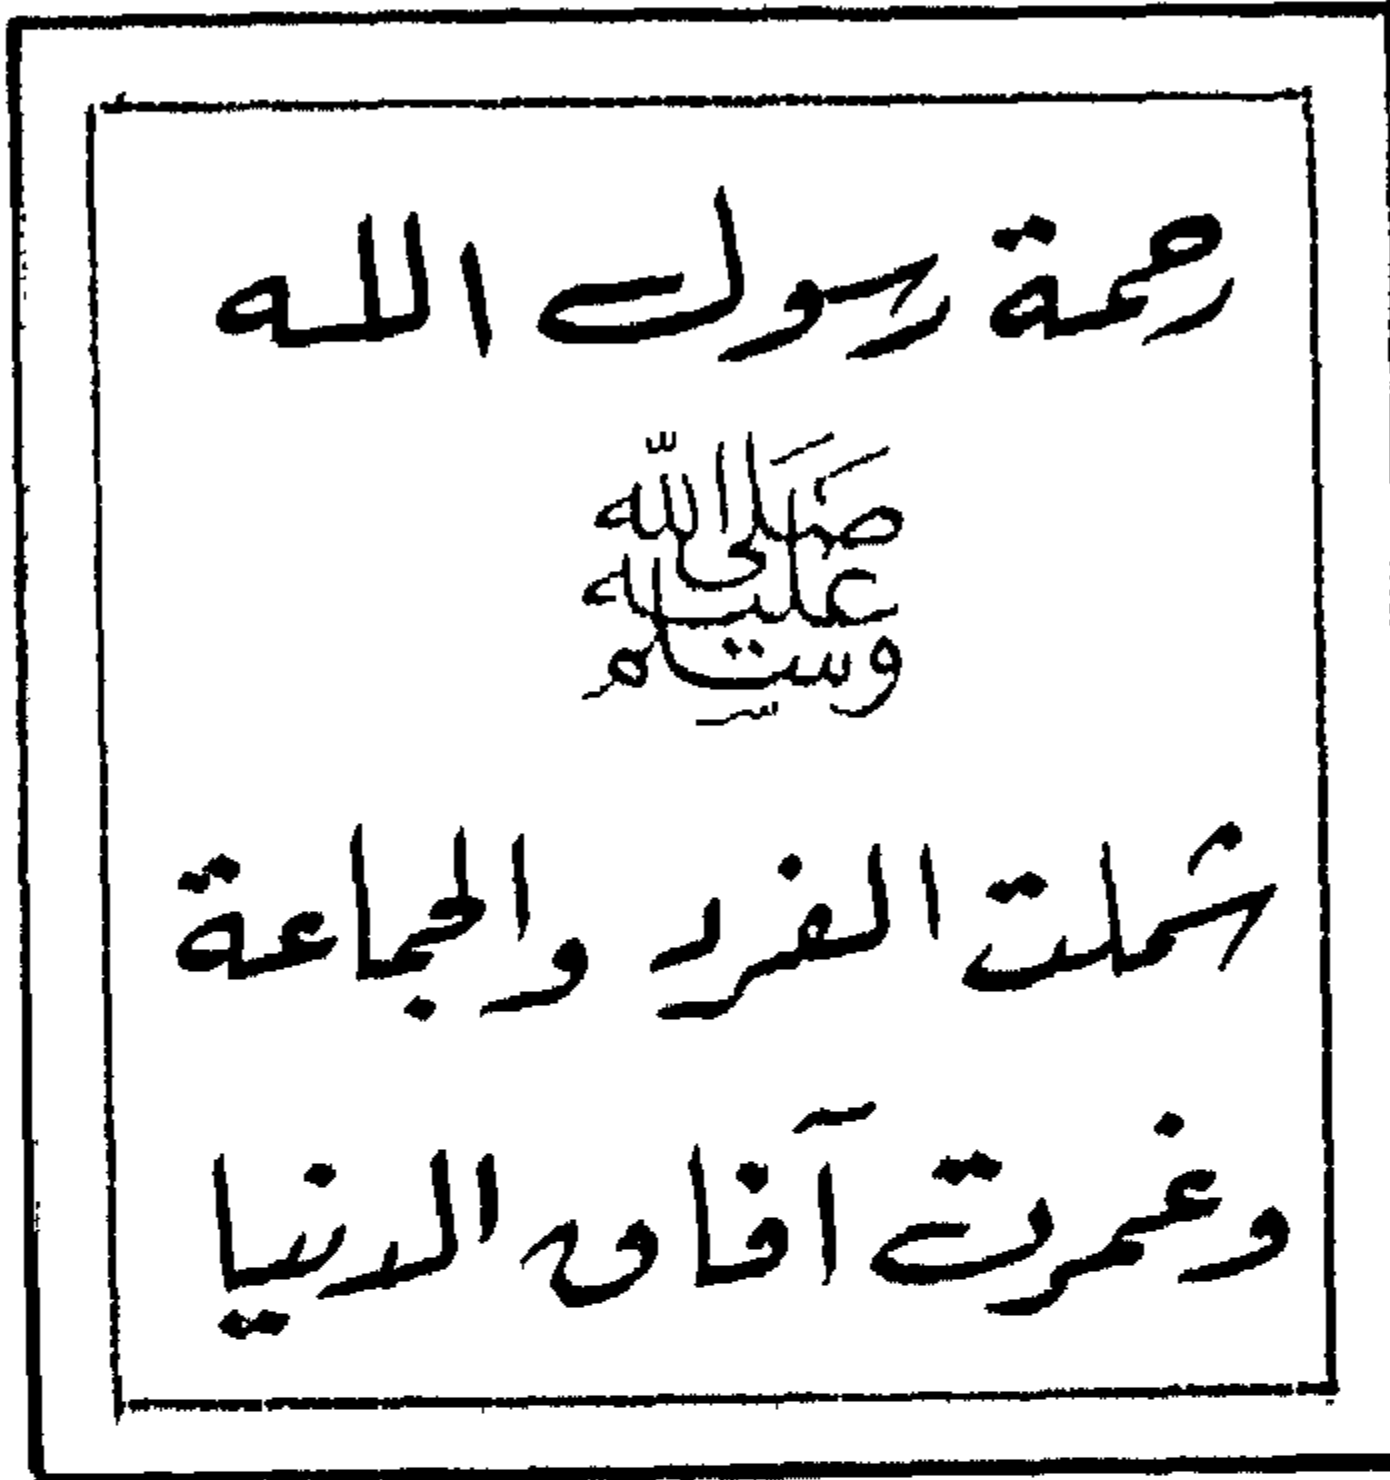 رحمة رسول الله
صلى الله
عليه
وسلم
شملت الفرد والجماعة
وغمرت آفاق الدنيا